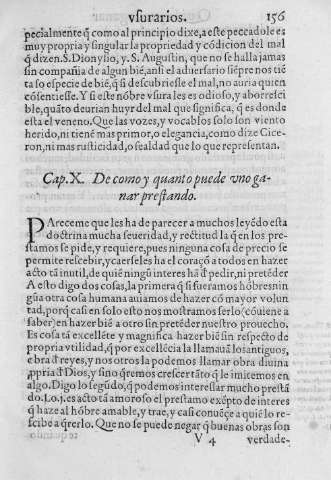 vsurarios. 156
pecialmente q̃ como al principio dixe, a este peccadole es
muy propria y singular la propriedad y cõdicion del mal
q̃ dizen. S. Dionysio, y. S. Augustin, que no se halla jamas
sin compañia de algun biẽ, ansi el aduersario siẽpre nos tiẽ
ta so especie de biẽ, q̃ si descubriesse el mal, no auria quien
cõsentiesse. Y si este nõbre vsura les es odioso, y aborresci
ble, quãto deurian huyr del mal que significa, q̃ es donde
esta el veneno. Que las vozes, y vocablos solo son viento
herido, ni tienẽ mas primor, o elegancia, como dize Cice-
ron, ni mas rusticidad, o fealdad que lo que representan.
Cap. X. De como y quanto puede vno ga-
nar prestando.
PAreceme que les ha de parecer a muchos leyẽdo esta
doctrina mucha seueridad, y rectitud la q̃ en los pre-
stamos se pide, y requiere, pues ninguna cosa de precio se
permite rescebir, y caerseles ha el coraçõ a todos en hazer
acto tã inutil, de quiẽ ningũ interes hã d̃ pedir, ni pretẽder
A esto digo dos cosas, la primera q̃ si fueramos hõbres nin
gũa otra cosa humana auiamos de hazer cõ mayor volun
tad, porq̃ casi en solo esto nos mostramos serlo (cõuiene a
saber) en hazer biẽ a otro sin pretẽder nuestro prouecho.
Es cosa tã excellẽte y magnifica hazer biẽ sin respecto de
propria vtilidad, q̃ por excellẽcia la llamauã los antiguos,
obra d̃ reyes, y nos otros la podemos llamar obra diuina
ꝓpria d̃ Dios, y sino q̃remos crescer tãto q̃ le imitemos en
algo. Digo lo segũdo, q̃ podemos interessar mucho prestã
do. Lo. j. es acto tã amoroso el prestamo exẽpto de interes
q̃ haze al hõbre amable, y trae, y casi conuẽçe a quiẽ lo re-
scibe a q̃rerlo. Que no se puede negar q̃ buenas obras son
V 4 verdade-